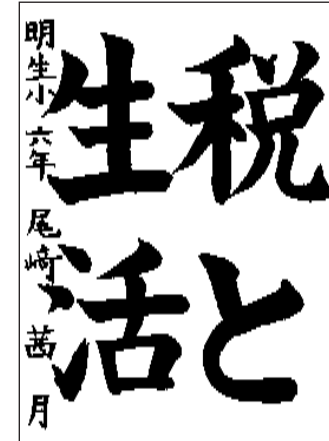 税と
生活
明生小 六年 尾﨑 茜月